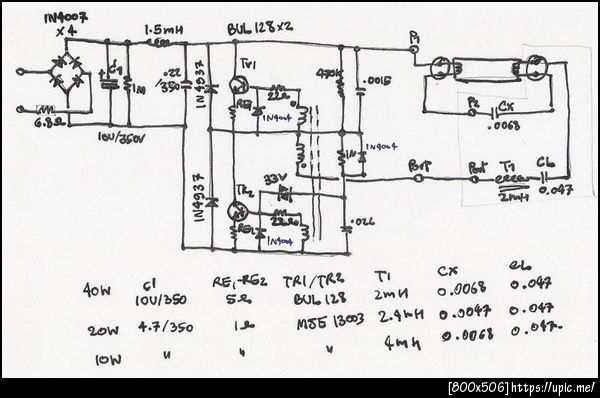 1N4007
×4
1.5mH
BUL128×2
C1
1M
.22
/350
1N4937
TR1
22Ω
RE1
1N4004
470K
.0015
P1
P2
CX
.0068
6.8Ω
10U/350V
1N4937
TR2
33V
22Ω
RE2
1N4004
1N4004
.022
Pout
Pout
T1
2mH
CL
0.047
C1 RE1-RE2 TR1/TR2 T1 CX CL
40W 10U/350 5Ω BUL128 2mH 0.0068 0.047
20W 4.7/350 1Ω MJE 13003 2.4mH 0.0047 0.047
10W " " " 4mH 0.0068 0.047
[800x506] https://upic.me/